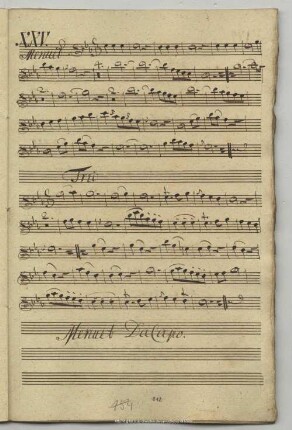 XXV.
Menuet
Trio
Menuet DaCapo.